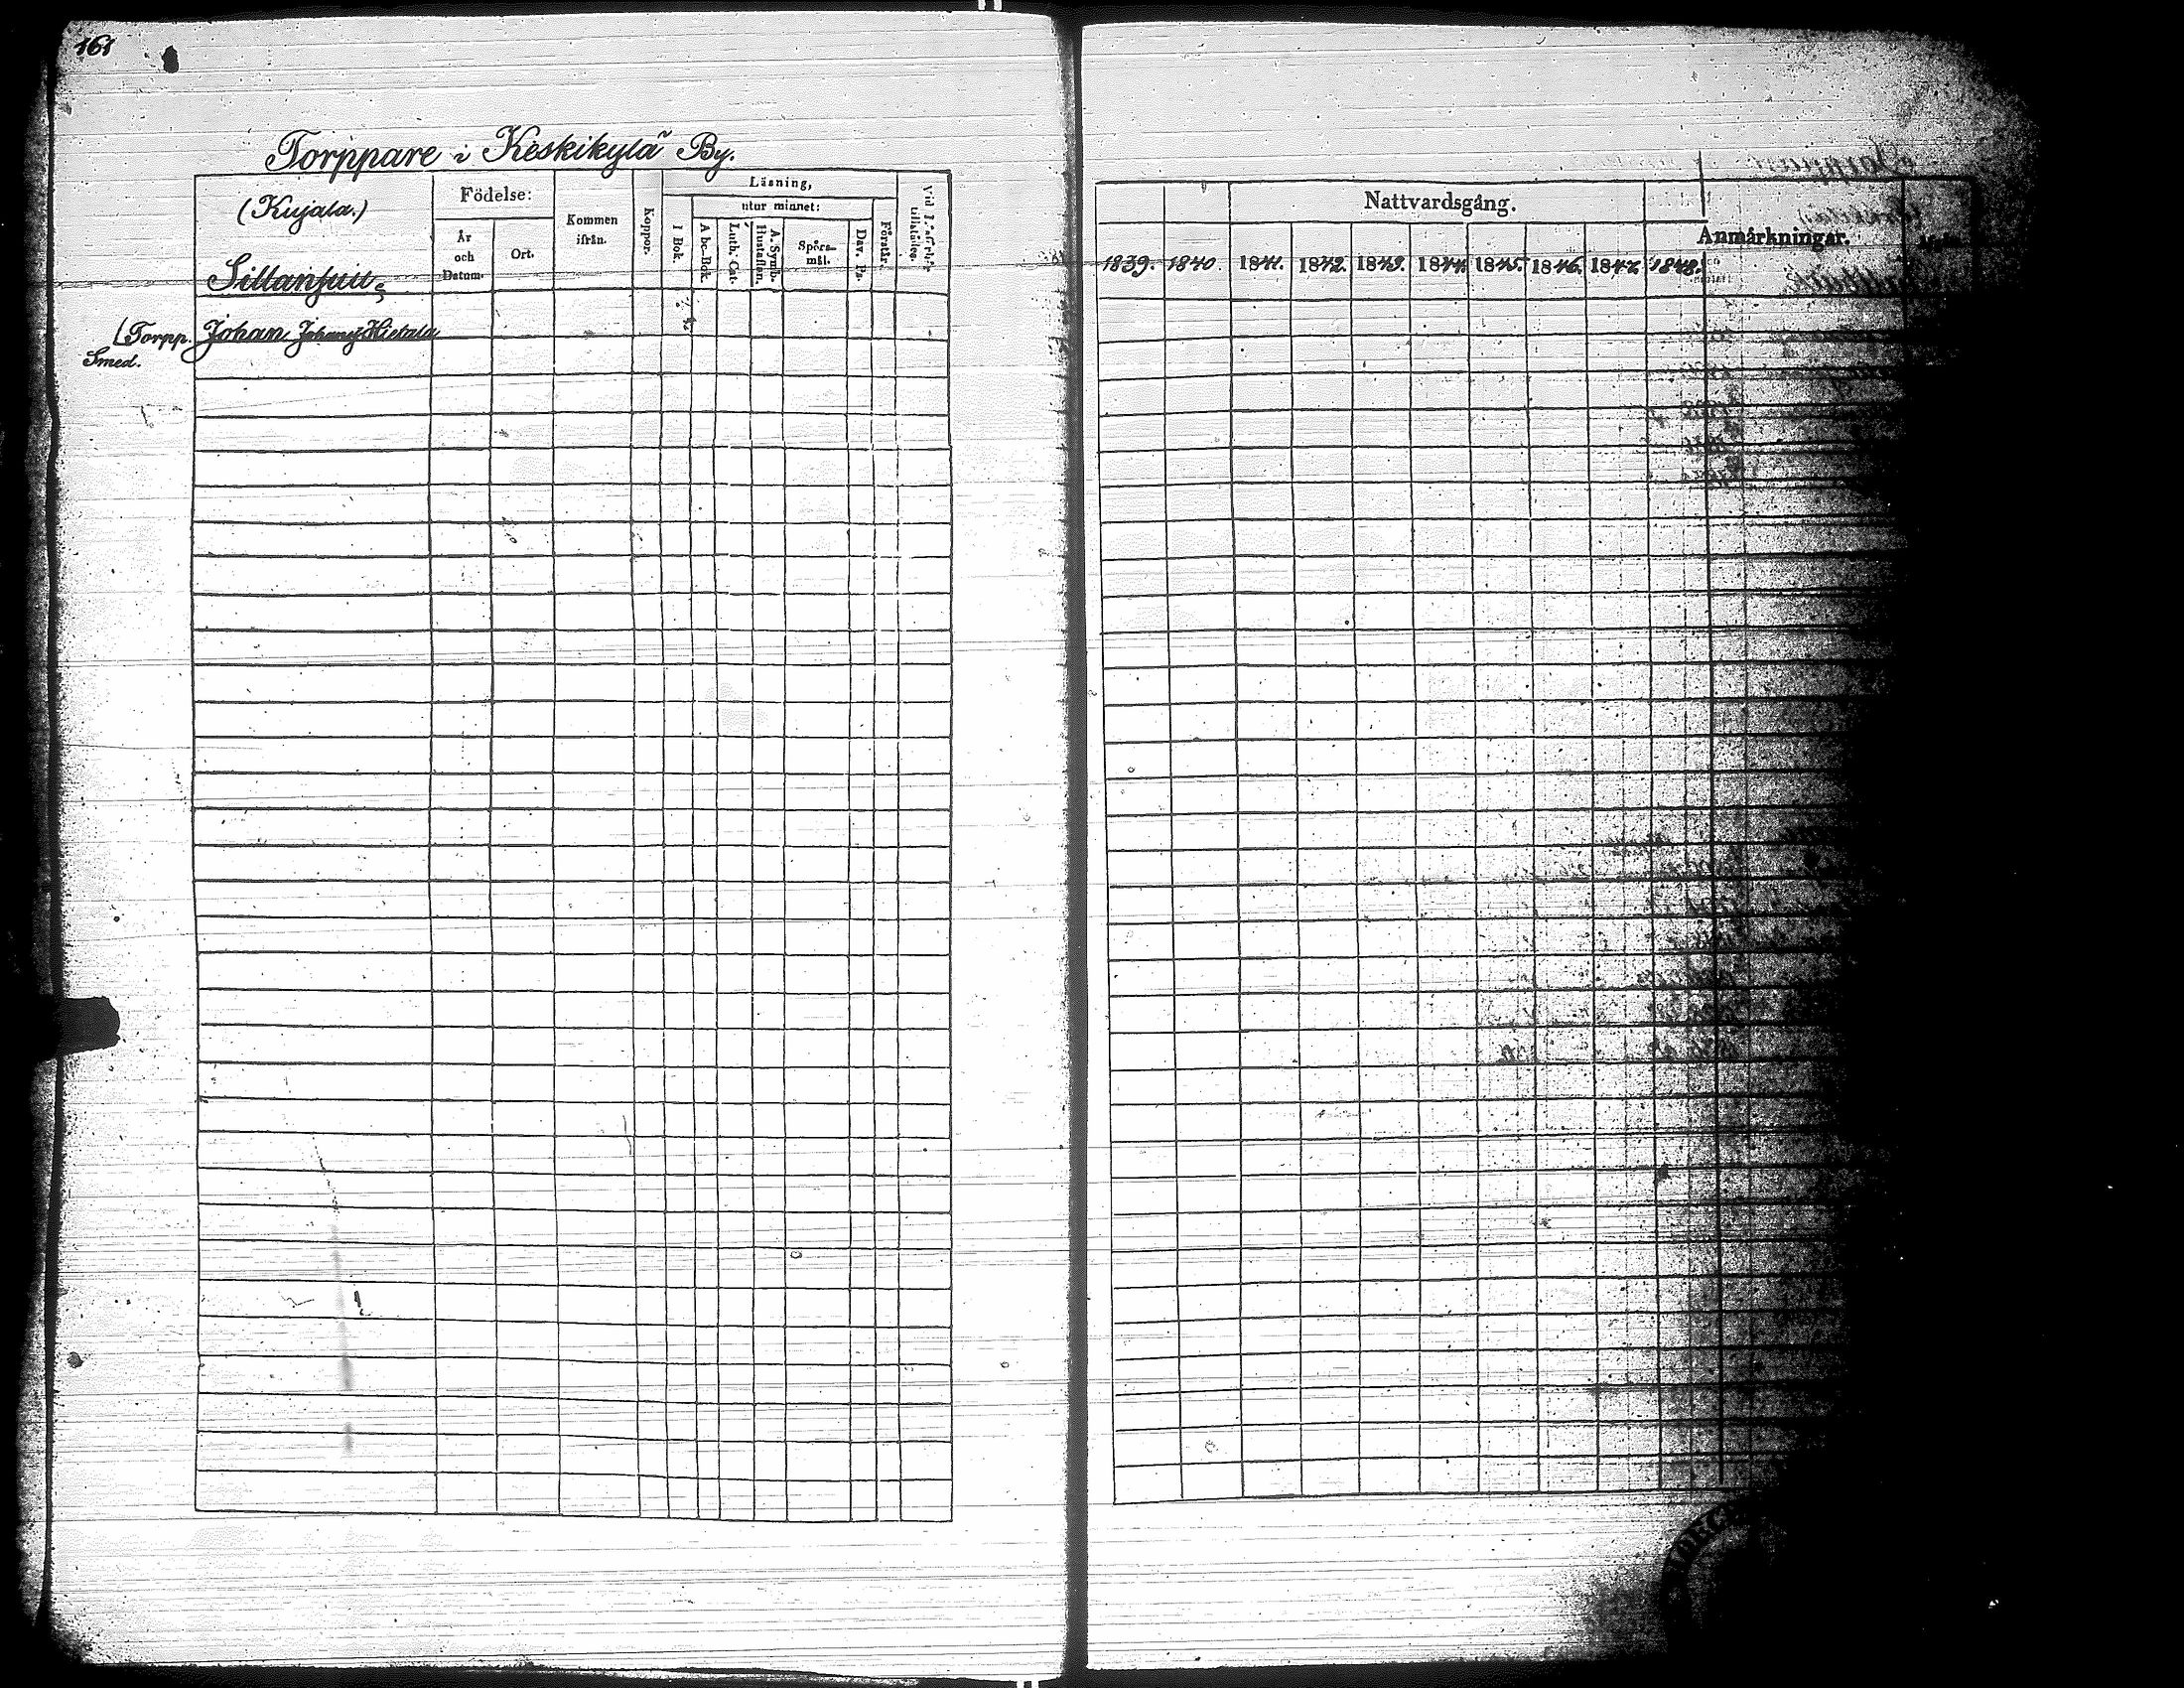 161
Torppare i Keskikylä By.
(Kujala.)
Sillansuu.
Födelse:
År
och
Datum.
Ort.
Kommen
ifrån.
Koppor.
Läsning,
utur minnet:
I Bok.
A bc-Bok.
Luth. Cat.
A. Symb.
Hustaflan.
Spörs-
mål.
Dav. Ps.
Förstår.
Vid
(Torpp. Johan Johanss Hietala
Smed.
Nattvardsgång.
Anmärkningar.
1839. 1840. 1841. 1842. 1843. 1844. 1845. 1846. 1847. 1848.